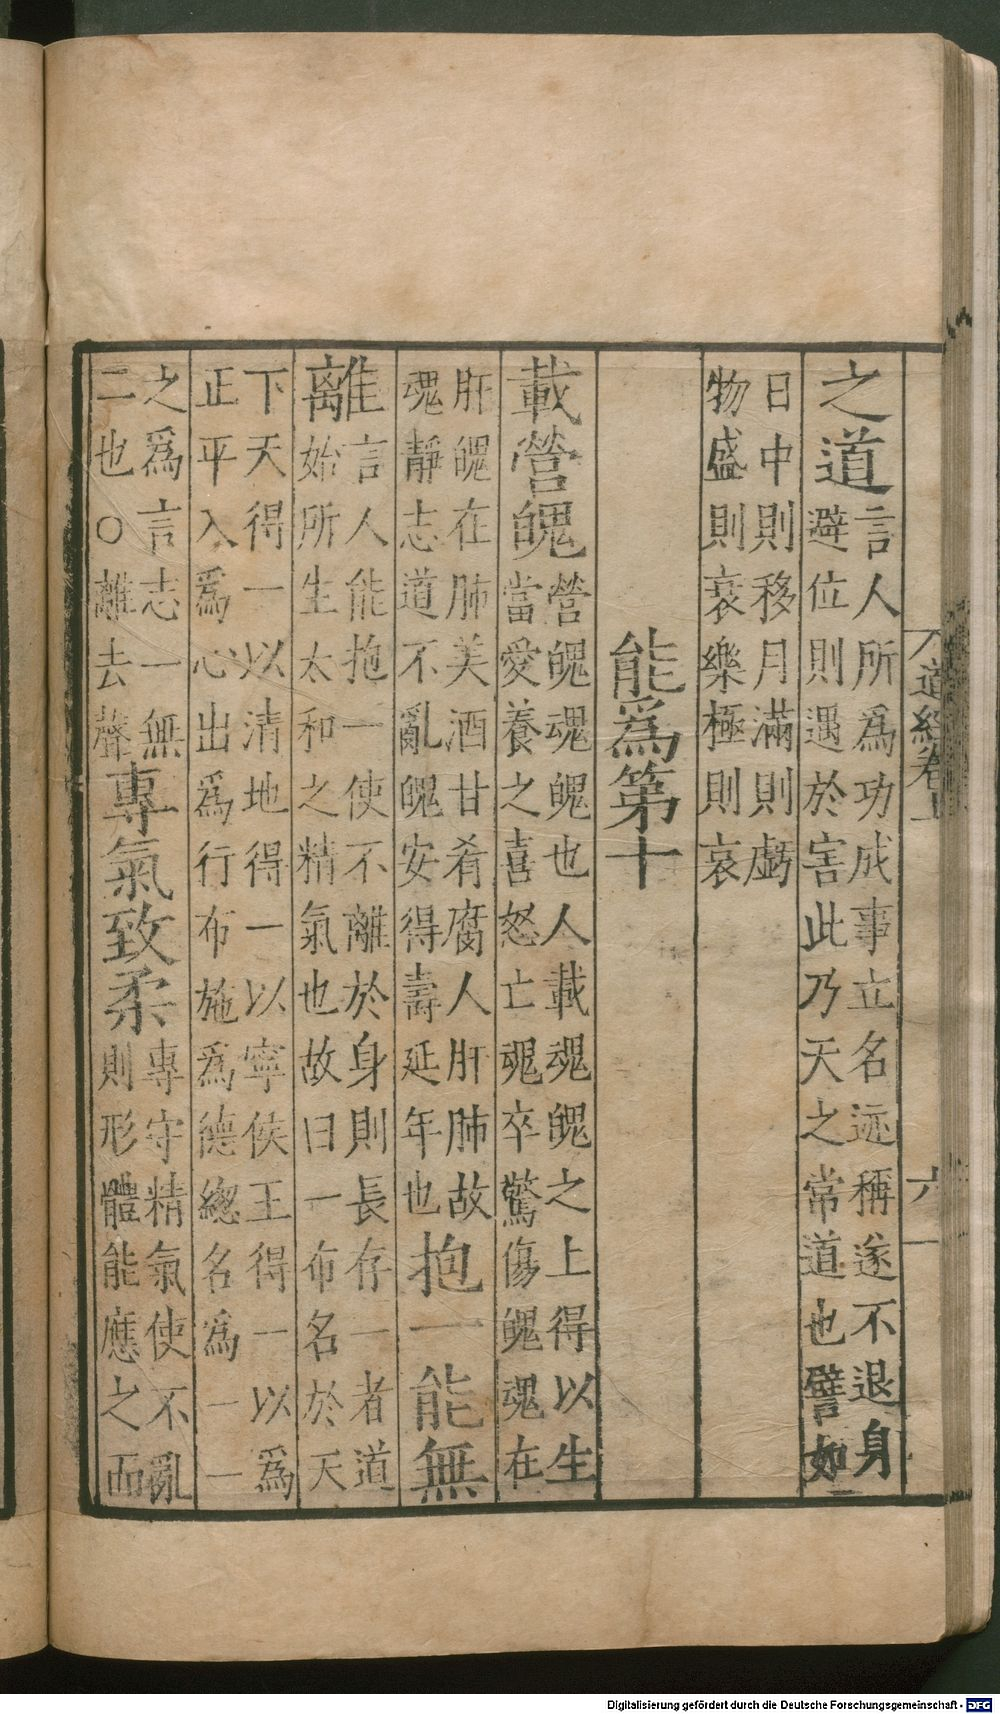 道經卷上
六
之道言人所爲功成事立名迹稱遂不退身避位則遇於害此乃天之常道也譬如
日中則移月滿則虧物盛則衰樂極則哀
能爲第十
載營魄營魄魂魄也人載魂魄之上得以生當愛養之喜怒亡魂卒驚傷魄魂在
肝魄在肺美酒甘肴腐人肝肺故魂靜志道不亂魄安得壽延年也抱一能無
離言人能抱一使不離於身則長存一者道始所生太和之精氣也故曰一布名於天
下天得一以清地得一以寧侯王得一以爲正平入爲心出爲行布施爲德總名爲一一
之爲言志一無二也○離去聲專氣致柔專守精氣使不亂則形體能應之而
Digitalisierung gefördert durch die Deutsche Forschungsgemeinschaft - DFG